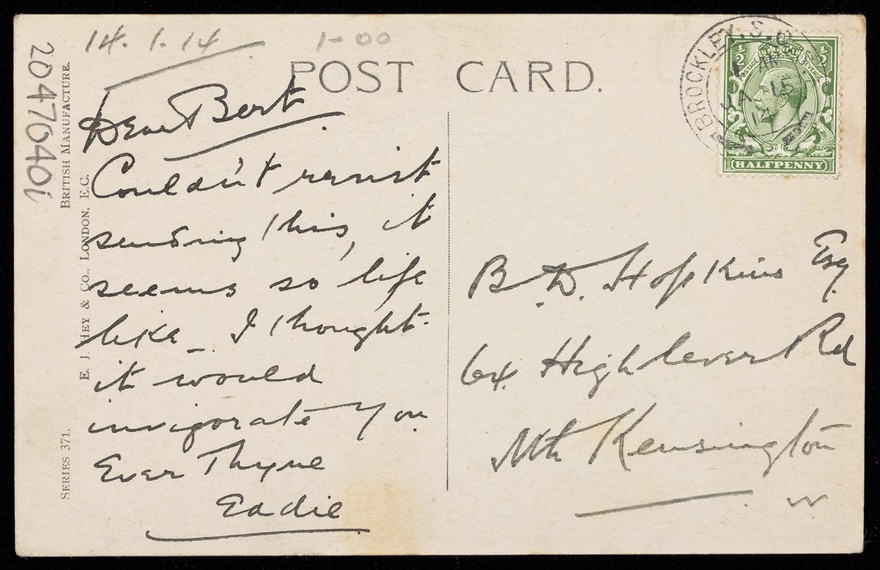 14.1.14
1-00
POST CARD.
Dear Bert
Couldn't resist
sending this, it
seems so life
like - I thought
it would
invigorate you
Ever Thyne
Eddie
B. D. Hopkins Esq.
64. Highlever Rd
Nth Kensington
W
BROCKLEY. S.O.
JA 15
14
HALFPENNY
20470401
BRITISH MANUFACTURE.
E. J. HEY & CO., LONDON, E.C.
SERIES 371.